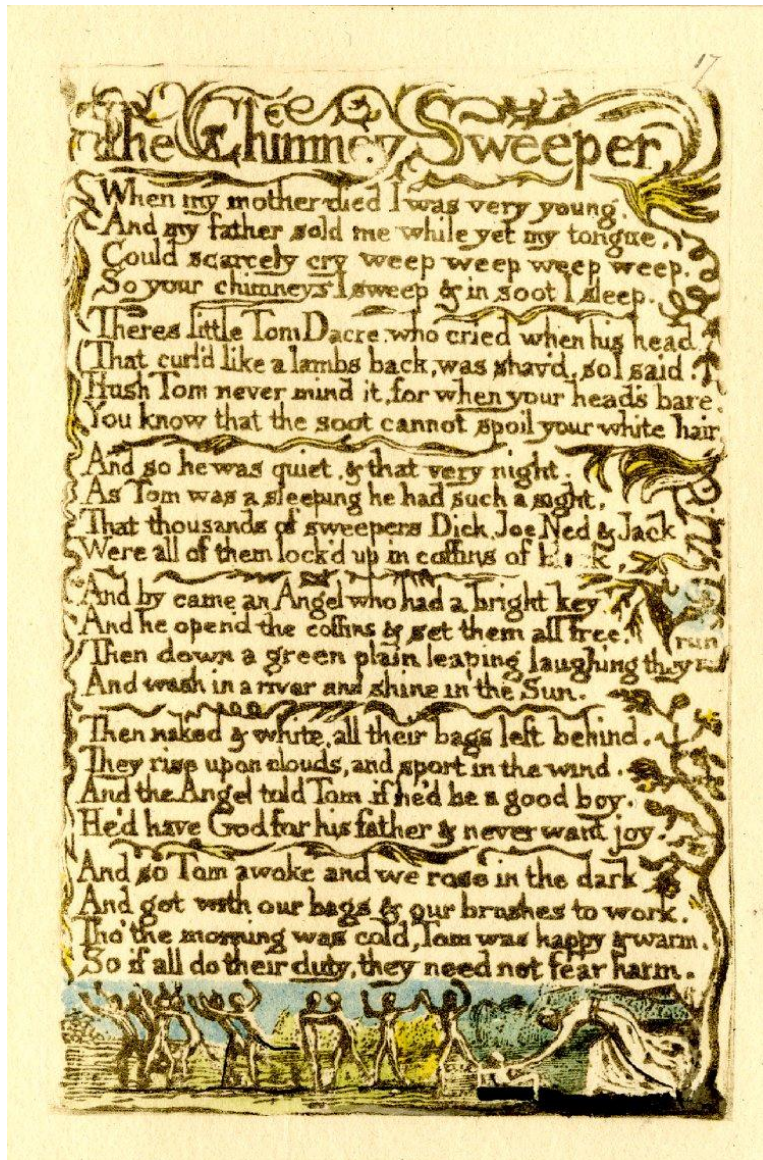 17
The Chimney Sweeper
When my mother died I was very young,
And my father sold me while yet my tongue,
Could scarcely cry weep weep weep weep.
So your chimneys I sweep & in soot I sleep.
Theres little Tom Dacre, who cried when his head
That curl'd like a lambs back, was shav'd, so I said.
Hush Tom never mind it, for when your head's bare,
You know that the soot cannot spoil your white hair
And so he was quiet, & that very night.
As Tom was a sleeping he had such a sight,
That thousands of sweepers Dick, Joe, Ned & Jack
Were all of them lock'd up in coffins of
And by came an Angel who had a bright key
And he open'd the coffins & set them all free.
run
Then down a green plain leaping laughing they
And wash in a river and shine in the Sun.
Then naked & white, all their bags left behind.
They rise upon clouds, and sport in the wind.
And the Angel told Tom if he'd be a good boy,
He'd have God for his father & never want joy.
And so Tom awoke and we rose in the dark
And got with our bags & our brushes to work.
Tho' the morning was cold, Tom was happy & warm.
So if all do their duty, they need not fear harm.